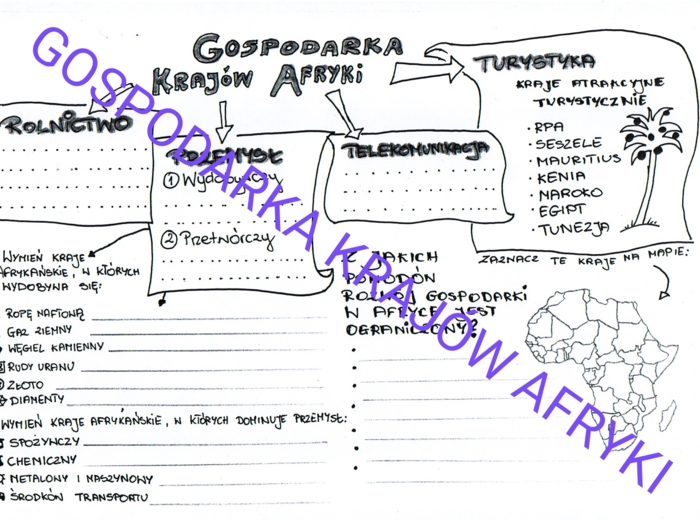 GOSPODARKA
KRAJÓW AFRYKI
TURYSTYKA
KRAJE ATRAKCYJNE
TURYSTYCZNIE
• RPA
• SESZELE
• MAURITIUS
• KENIA
• NAROKO
• EGIPT
• TUNEZJA
ROLNICTWO
PRZEMYSŁ
① Wydobywczy
② Przetwórczy
TELEKOMUNIKACJA
ZAZNACZ TE KRAJE NA MAPIE:
WYMIEŃ KRAJE
AFRYKAŃSKIE, W KTÓRYCH
WYDOBYWA SIĘ:
ROPĘ NAFTOWĄ
GAZ ZIEMNY
WĘGIEL KAMIENNY
RUDY URANU
ZŁOTO
DIAMENTY
WYMIEŃ KRAJE AFRYKAŃSKIE, W KTÓRYCH DOMINUJE PRZEMYSŁ:
SPOŻYWCZY
CHEMICZNY
METALOWY I MASZYNOWY
ŚRODKÓW TRANSPORTU
Z JAKICH
POWODÓW
ROZWÓJ GOSPODARKI
W AFRYCE JEST
OGRANICZONY?
GOSPODARKA KRAJÓW AFRYKI